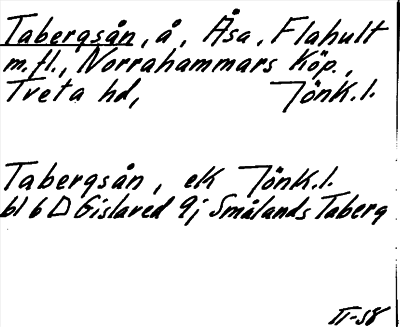 Tabergsån, å, Åsa, Flahult
m.fl., Norrahammars köp.,
Tveta hd, Jönk.l.
Tabergsån, ek Jönk.l.
bl 6 D Gislaved 9j Smålands Taberg
II-58